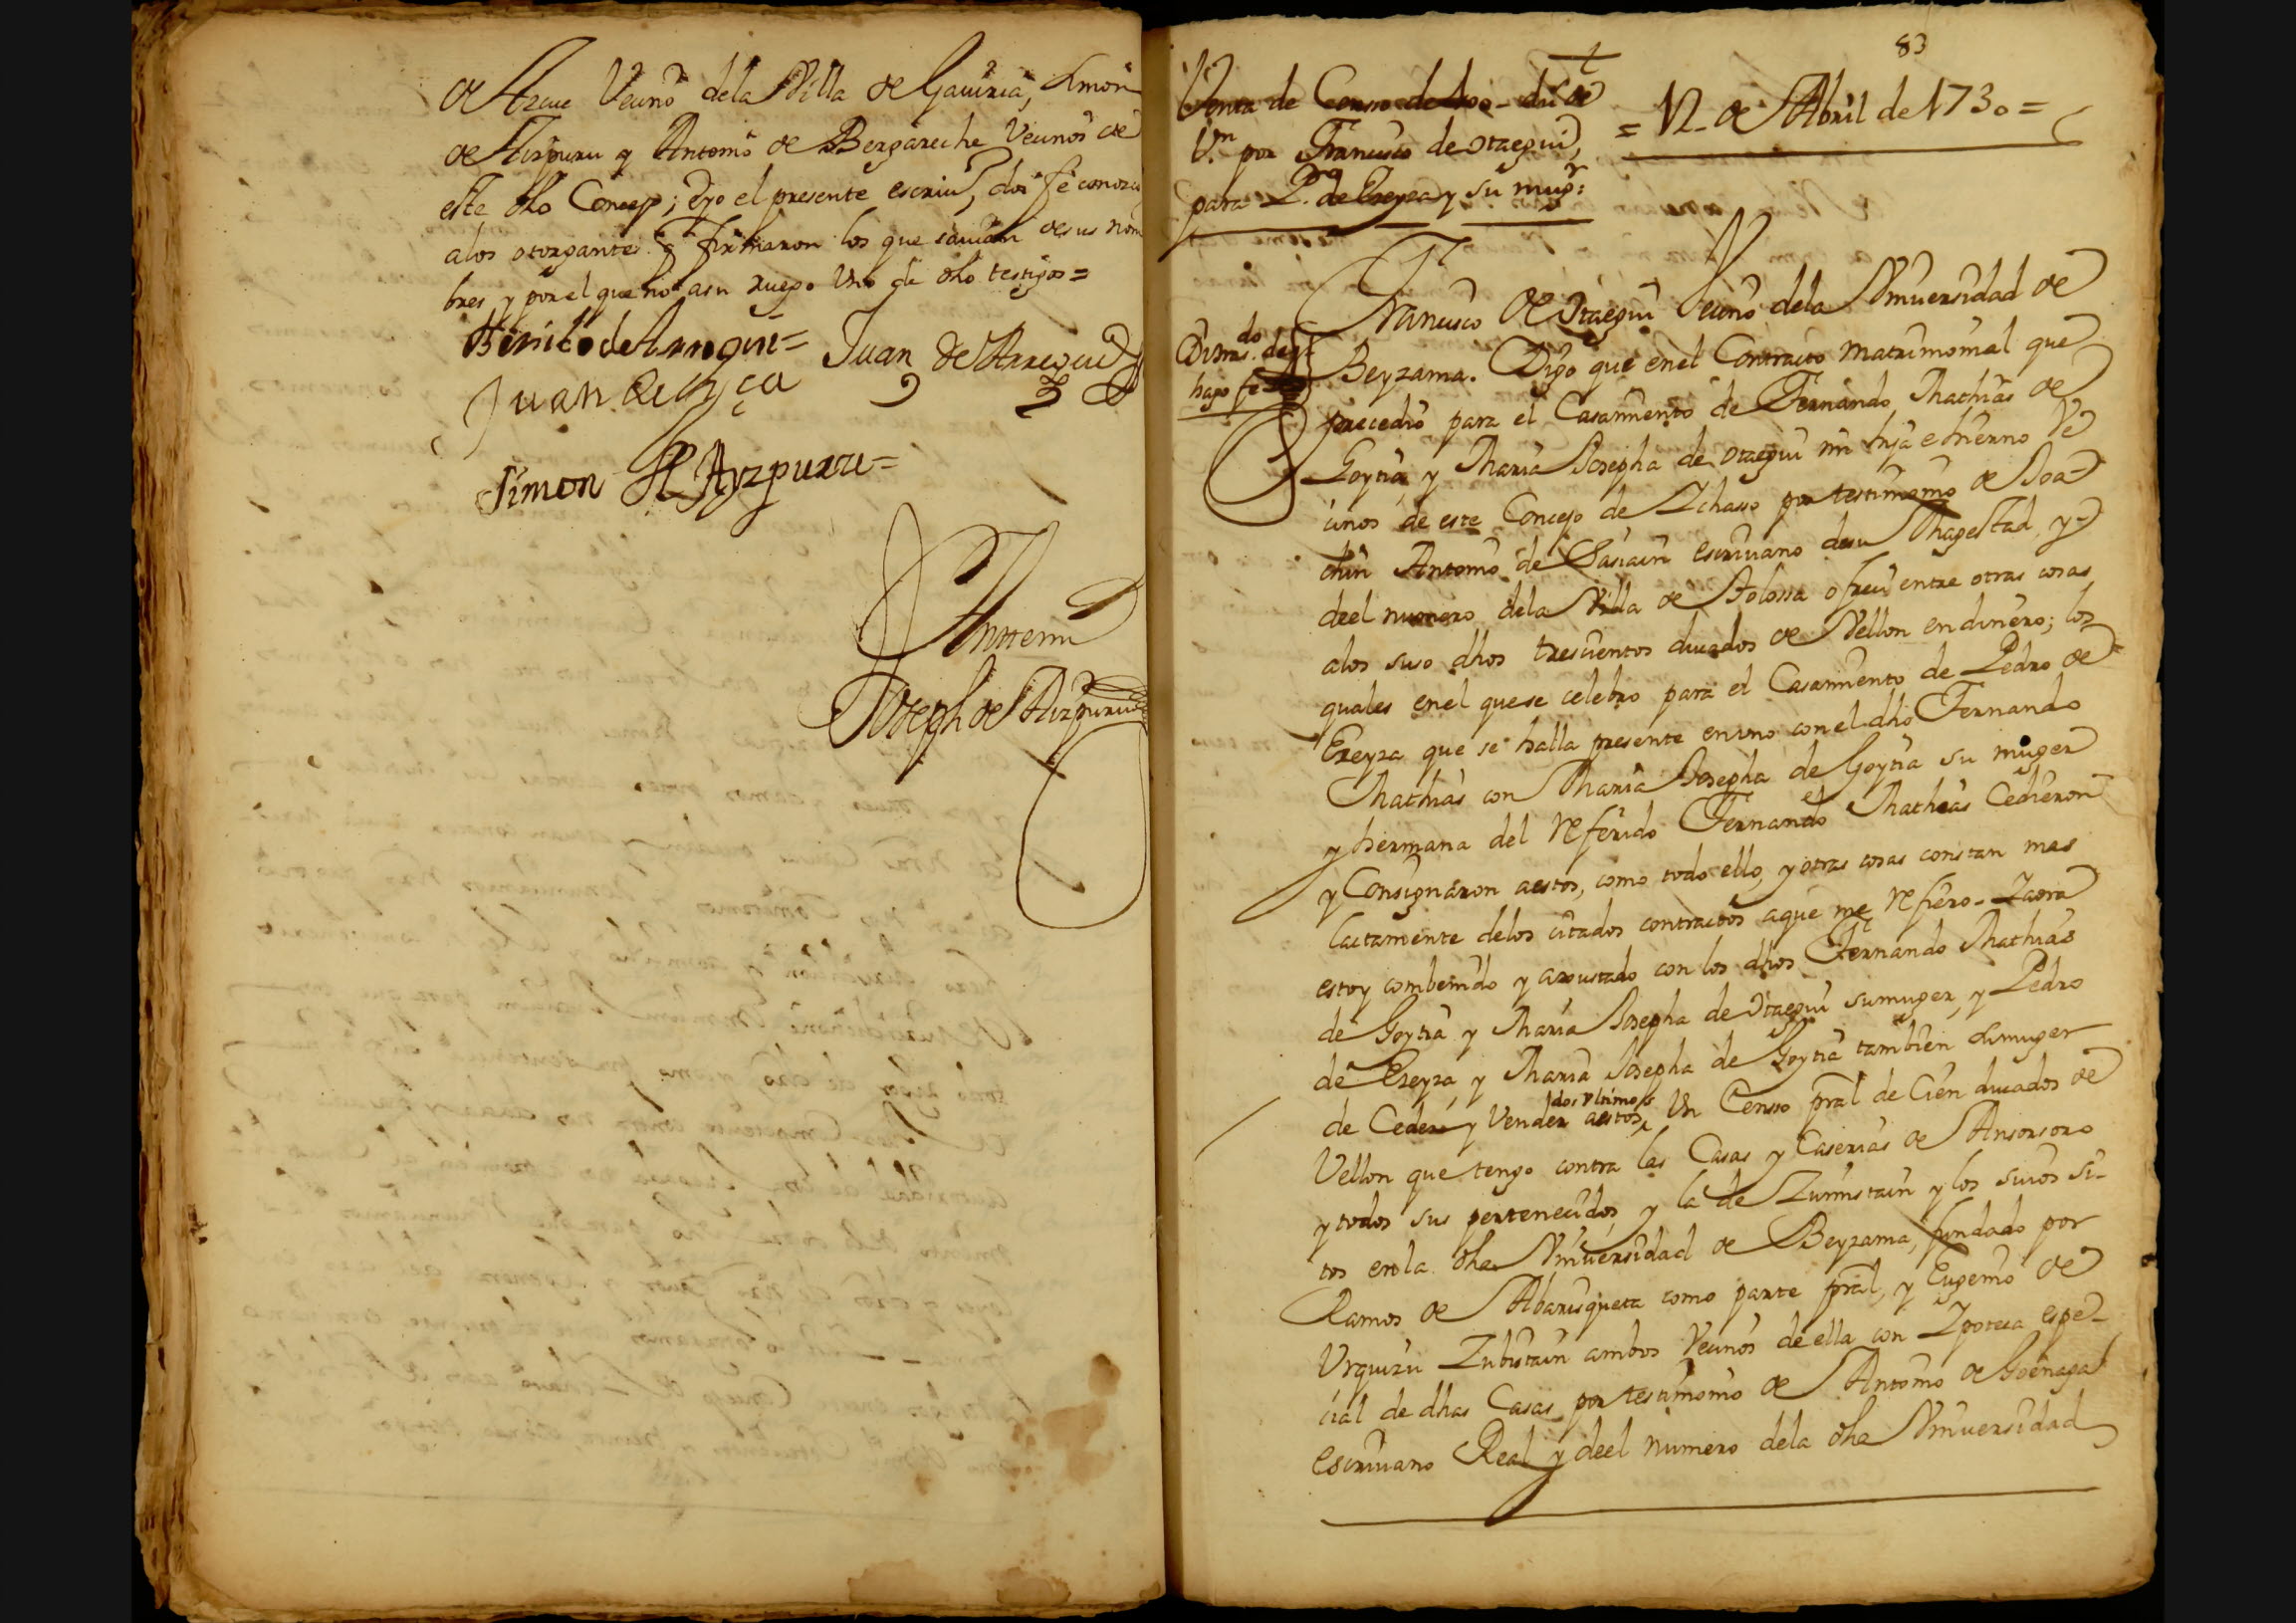 de Azcue Vecino dela Villa de Gaviria, Simon
de Aizpuru y Antonio de Bergareche Vecinos de
este dho Concejo; E yo el presente escriuº, doi fe conozco
alos otorgantes q firmaron los que sauian de sus nom
bres, y por el que no asu ruego Uno de dho testigos=
Juan de Arregui
Simon de Ayzpuru=
Antemi
Joseph de Aizpuru
83
Venta de Censo de 100- duº de
V.n por Francisco de Otaegui,
para P.º de Ereyza y su mug.r
= 12 de Abril de 1730 =
hago fe
Francisco de Otaegui Vecino dela Vniuersidad de
Beyzama. Digo que enel Contracto matrimonial que
precedio para el Casamiento de Fernando Mathias de
Goytia y Maria Josepha de Otaegui mi hija e hierno Ve
cinos de este Concejo de Ichasso por testimonio de Joa
chin Antonio de Sasiain escriuano desu Magestad, y
deel numero dela Villa de Tolossa ofreci entre otras cosas
alos suso dhos trescientos ducados de Vellon en dinero; los
quales enel quese celebro para el Casamiento de Pedro de
Ereyza que se halla presente en vno con el dho Fernando
Mathias con Maria Josepha de Goytia su muger
y hermana del referido Fernando Mathias Cedieron
y Consignaron aestos, como todo ello, y otras cosas constan mas
lactamente delos citados contractos aque me refiero. Yaora
estoy combenido y axustado con los dhos Fernando Mathias
de Goytia y Maria Josepha de Otaegui sumuger, y Pedro
de Ereyza, y Maria Josepha de Goytia tambien sumuger
dos vltimos
de Ceder y Vender aestos Un Censso pral de Cien ducados de
Vellon que tengo contra las Casas y Caserias de Ansorsoro
y todos sus pertenecidos y la de Zuinistain y los suios si-
tos en la dha Vniuersidad de Beyzama, fundado por
Ramos de Abarisqueta como parte pral, y Eugenio de
Urquizu Zubistain ambos Vecinos de ella con Ipoteca espe-
cial de dhas Casas por testimonio de Antonio de Goenaga
escriuano Real y deel numero dela dha Vniuersidad